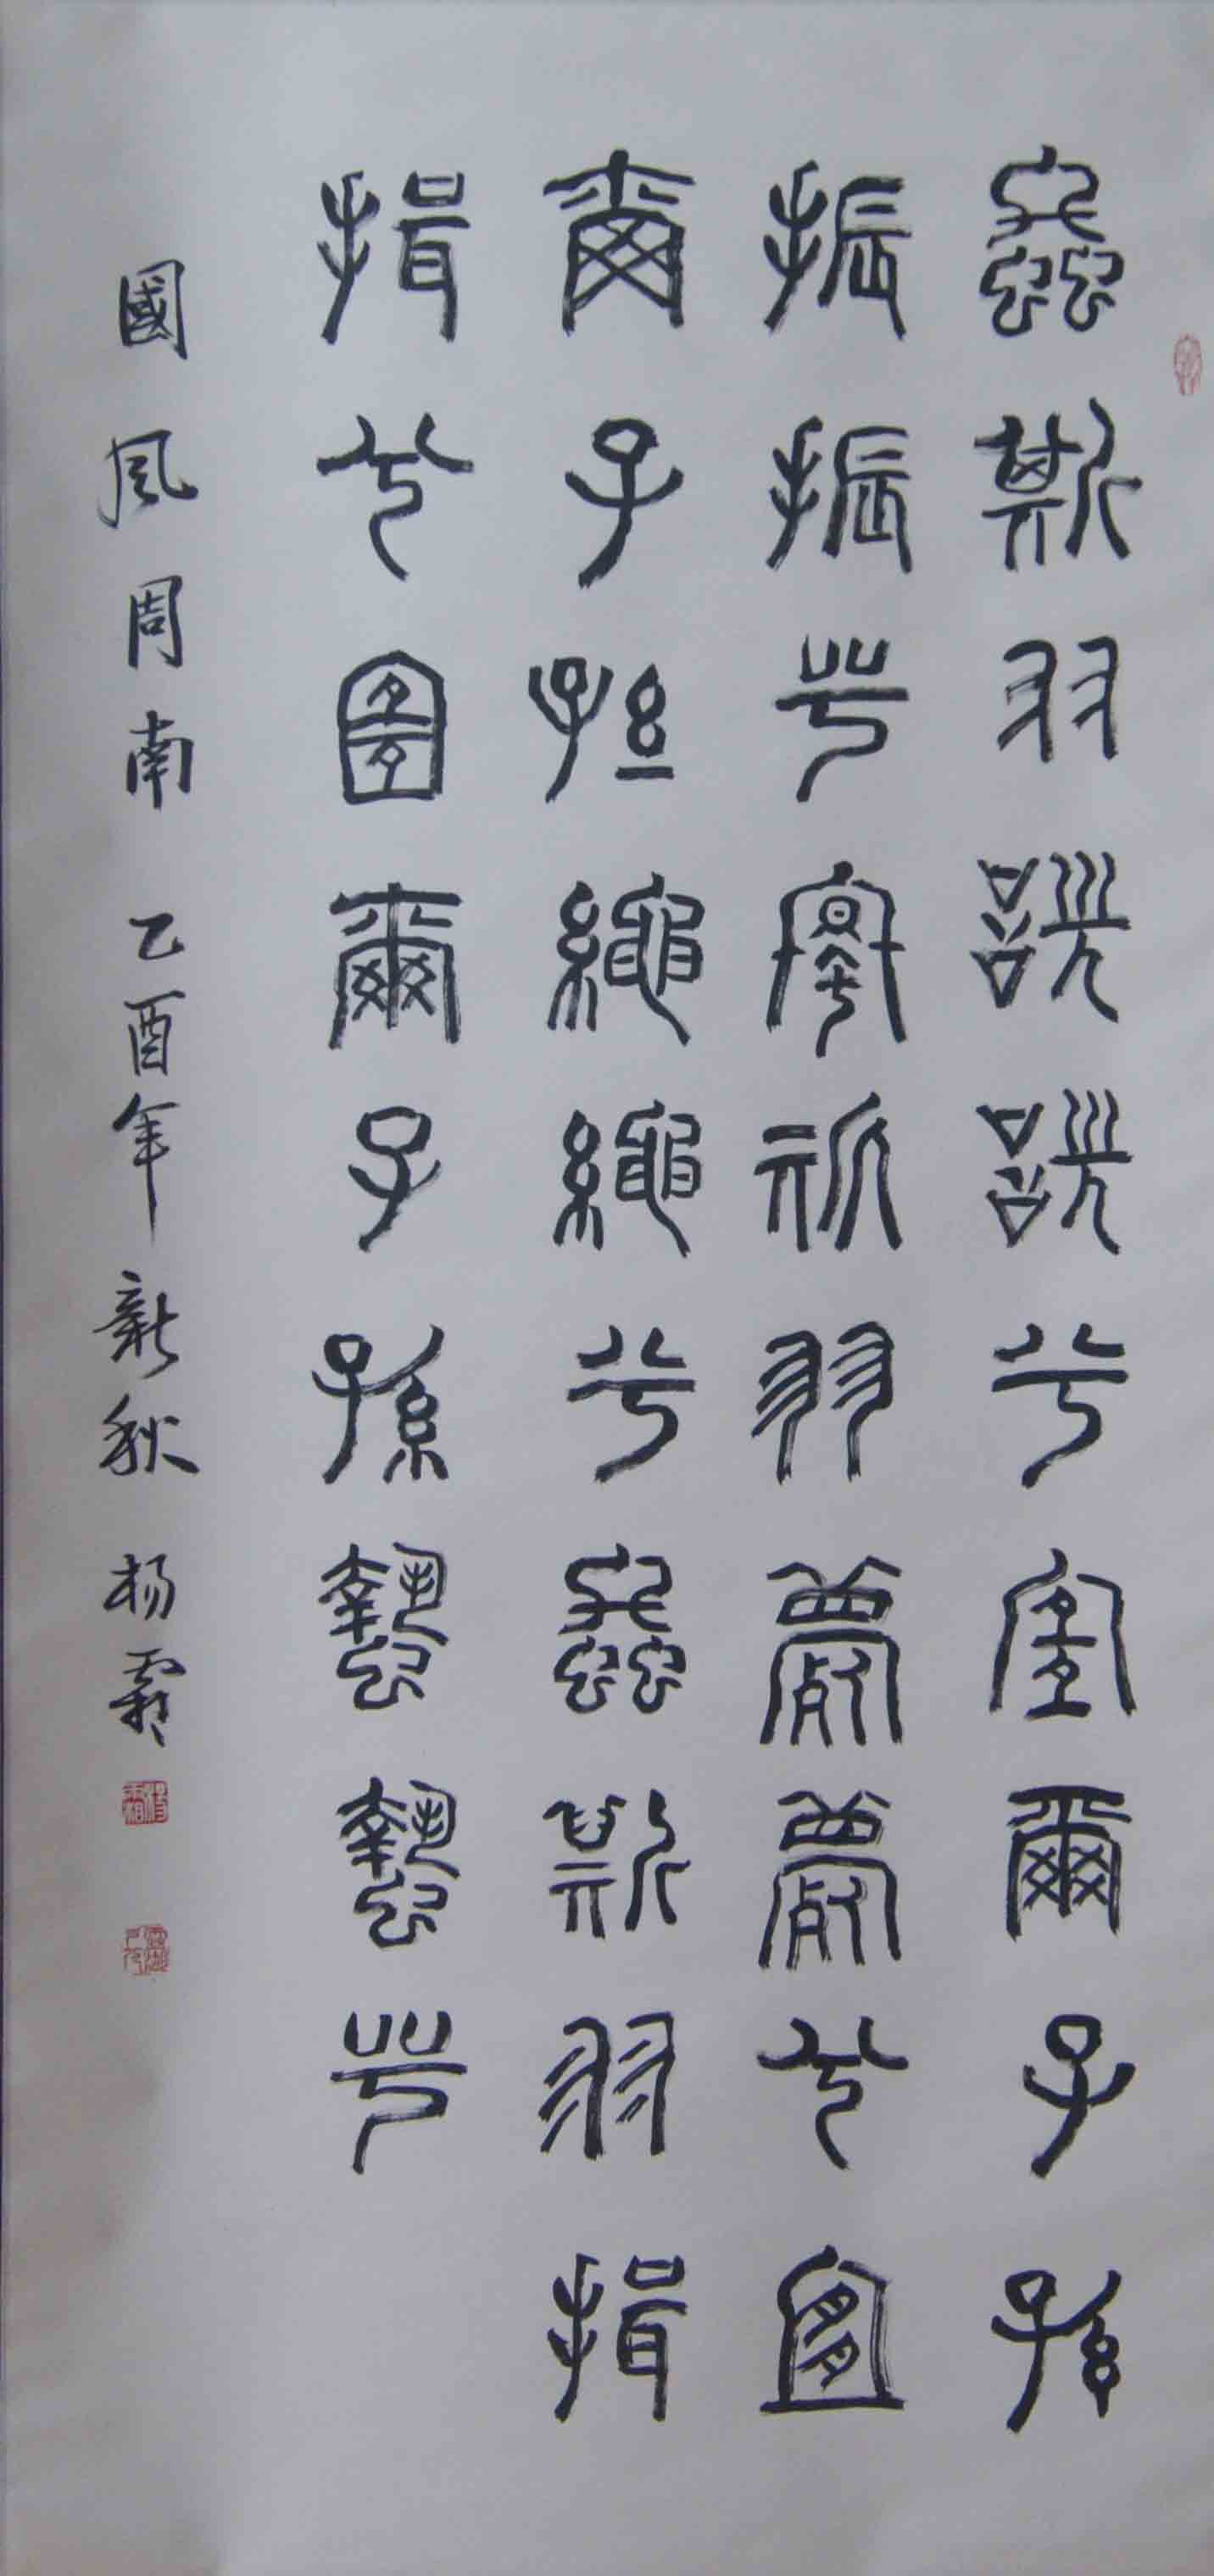 螽斯羽詵詵兮宜爾子孫
振振兮螽斯羽薨薨兮宜
爾子孫繩繩兮螽斯羽揖
揖兮宜爾子孫蟄蟄兮
國風周南 乙酉年新秋 杨霜